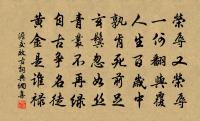 榮辱又榮辱
一何翻與覆
人生百歲中
孰肯死前足
玄鬢忽如絲
青叢不再綠
自古爭名徒
黃金是誰祿